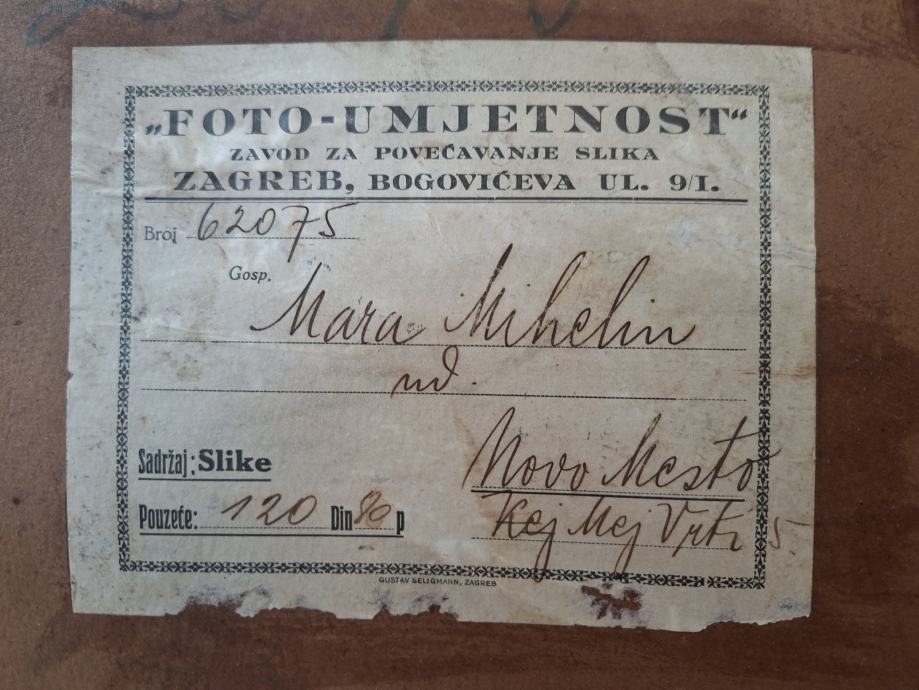 „FOTO-UMJETNOST“
ZAVOD ZA POVEĆAVANJE SLIKA
ZAGREB, BOGOVIĆEVA UL. 9/I.
Broj 62075
Gosp.
Mara Mihelin
ud.
Novo Mesto
Sadržaj: Slike
Kej Mej Vrti 5
Pouzeće: 120 Din 80 p
GUSTAV SELIGMANN, ZAGREB